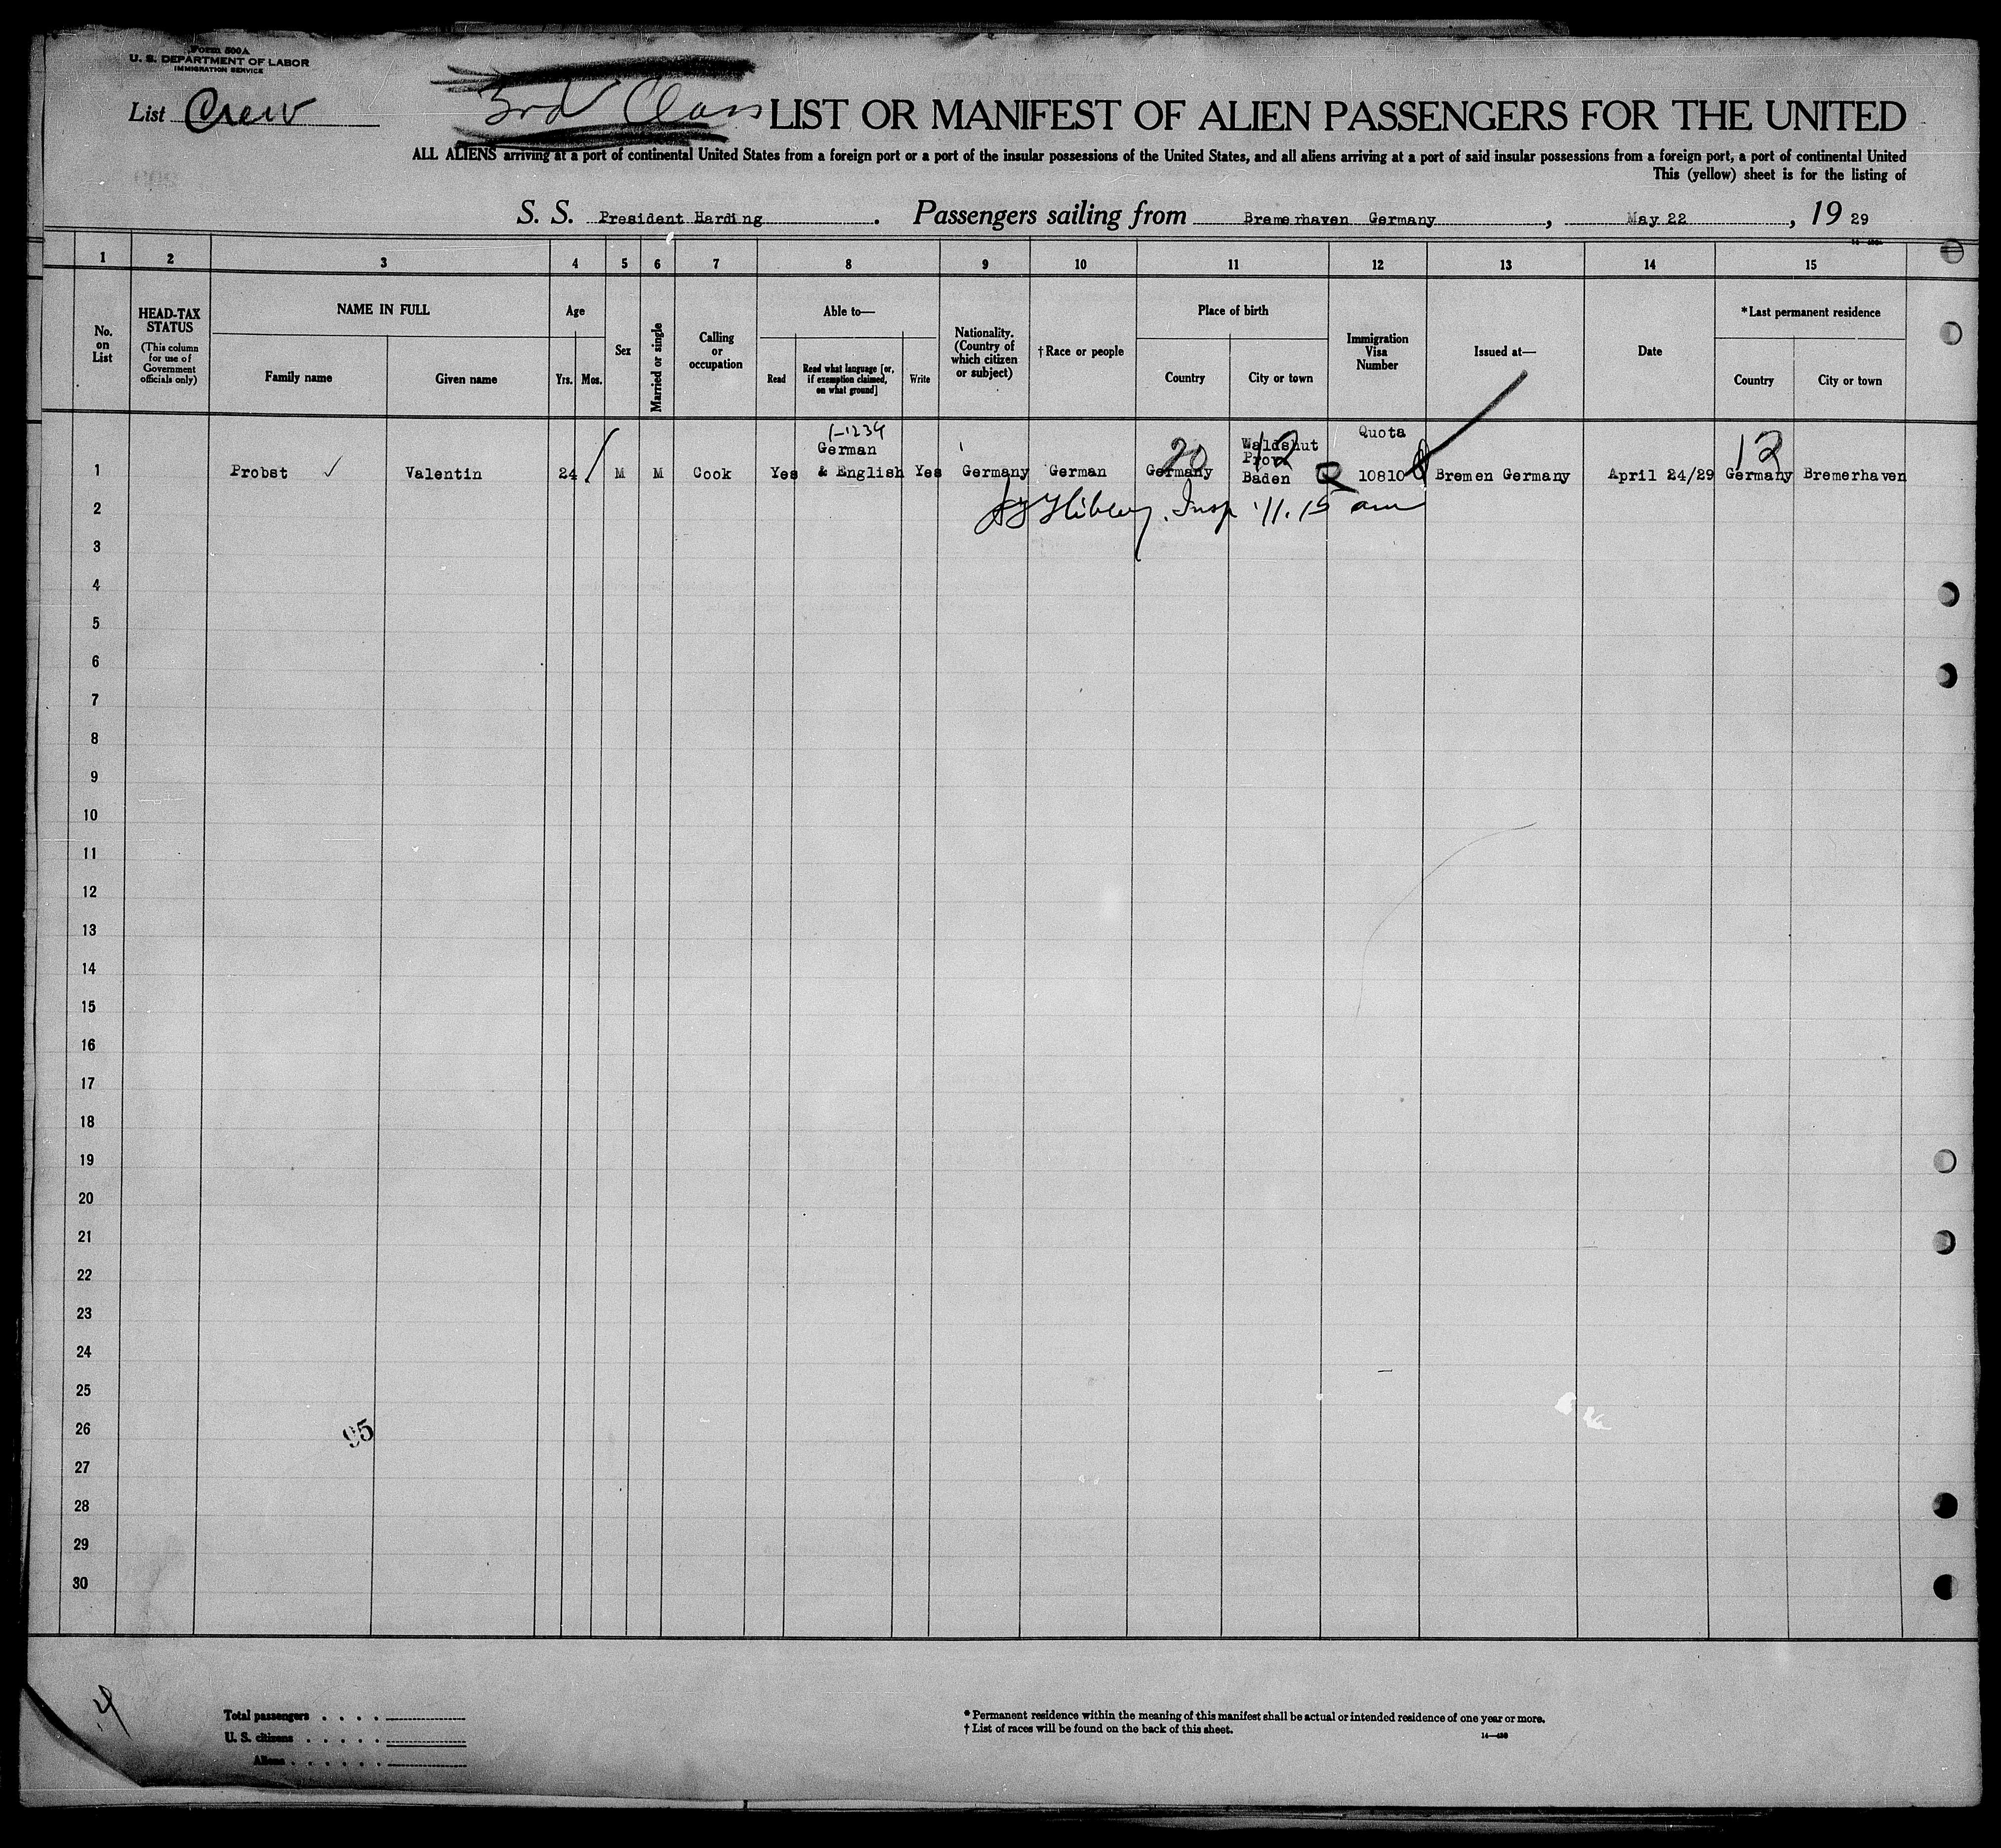 Form 500A
U. S. DEPARTMENT OF LABOR
IMMIGRATION SERVICE
List Crew
3rd Class LIST OR MANIFEST OF ALIEN PASSENGERS FOR THE UNITED
ALL ALIENS arriving at a port of continental United States from a foreign port or a port of the insular possessions of the United States, and all aliens arriving at a port of said insular possessions from a foreign port, a port of continental United
This (yellow) sheet is for the listing of
S. S. President Harding. Passengers sailing from Bremerhaven Germany, May 22, 19 29
1 2 3 4 5 6 7 8 9 10 11 12 13 14 15
No. on List
HEAD-TAX STATUS
(This column for use of Government officials only)
NAME IN FULL
Family name Given name
Age
Yrs. Mos.
Sex
Married or single
Calling or occupation
Able to—
Read Read what language [or, if exemption claimed, on what ground] Write
Nationality. (Country of which citizen or subject)
†Race or people
Place of birth
Country City or town
Immigration Visa Number
Issued at—
Date
*Last permanent residence
Country City or town
1-1234
1 Probst ✓ Valentin 24 M M Cook Yes German & English Yes Germany German 20 Germany 12 Waldshut Prov Baden Q Quota 10810 Bremen Germany April 24/29 12 Germany Bremerhaven
2 Insp 11.15 am
3
4
5
6
7
8
9
10
11
12
13
14
15
16
17
18
19
20
21
22
23
24
25
26
95
27
28
29
30
Total passengers . . . .
U. S. citizens . . . . .
Aliens . . . . . .
* Permanent residence within the meaning of this manifest shall be actual or intended residence of one year or more.
† List of races will be found on the back of this sheet.
14—430